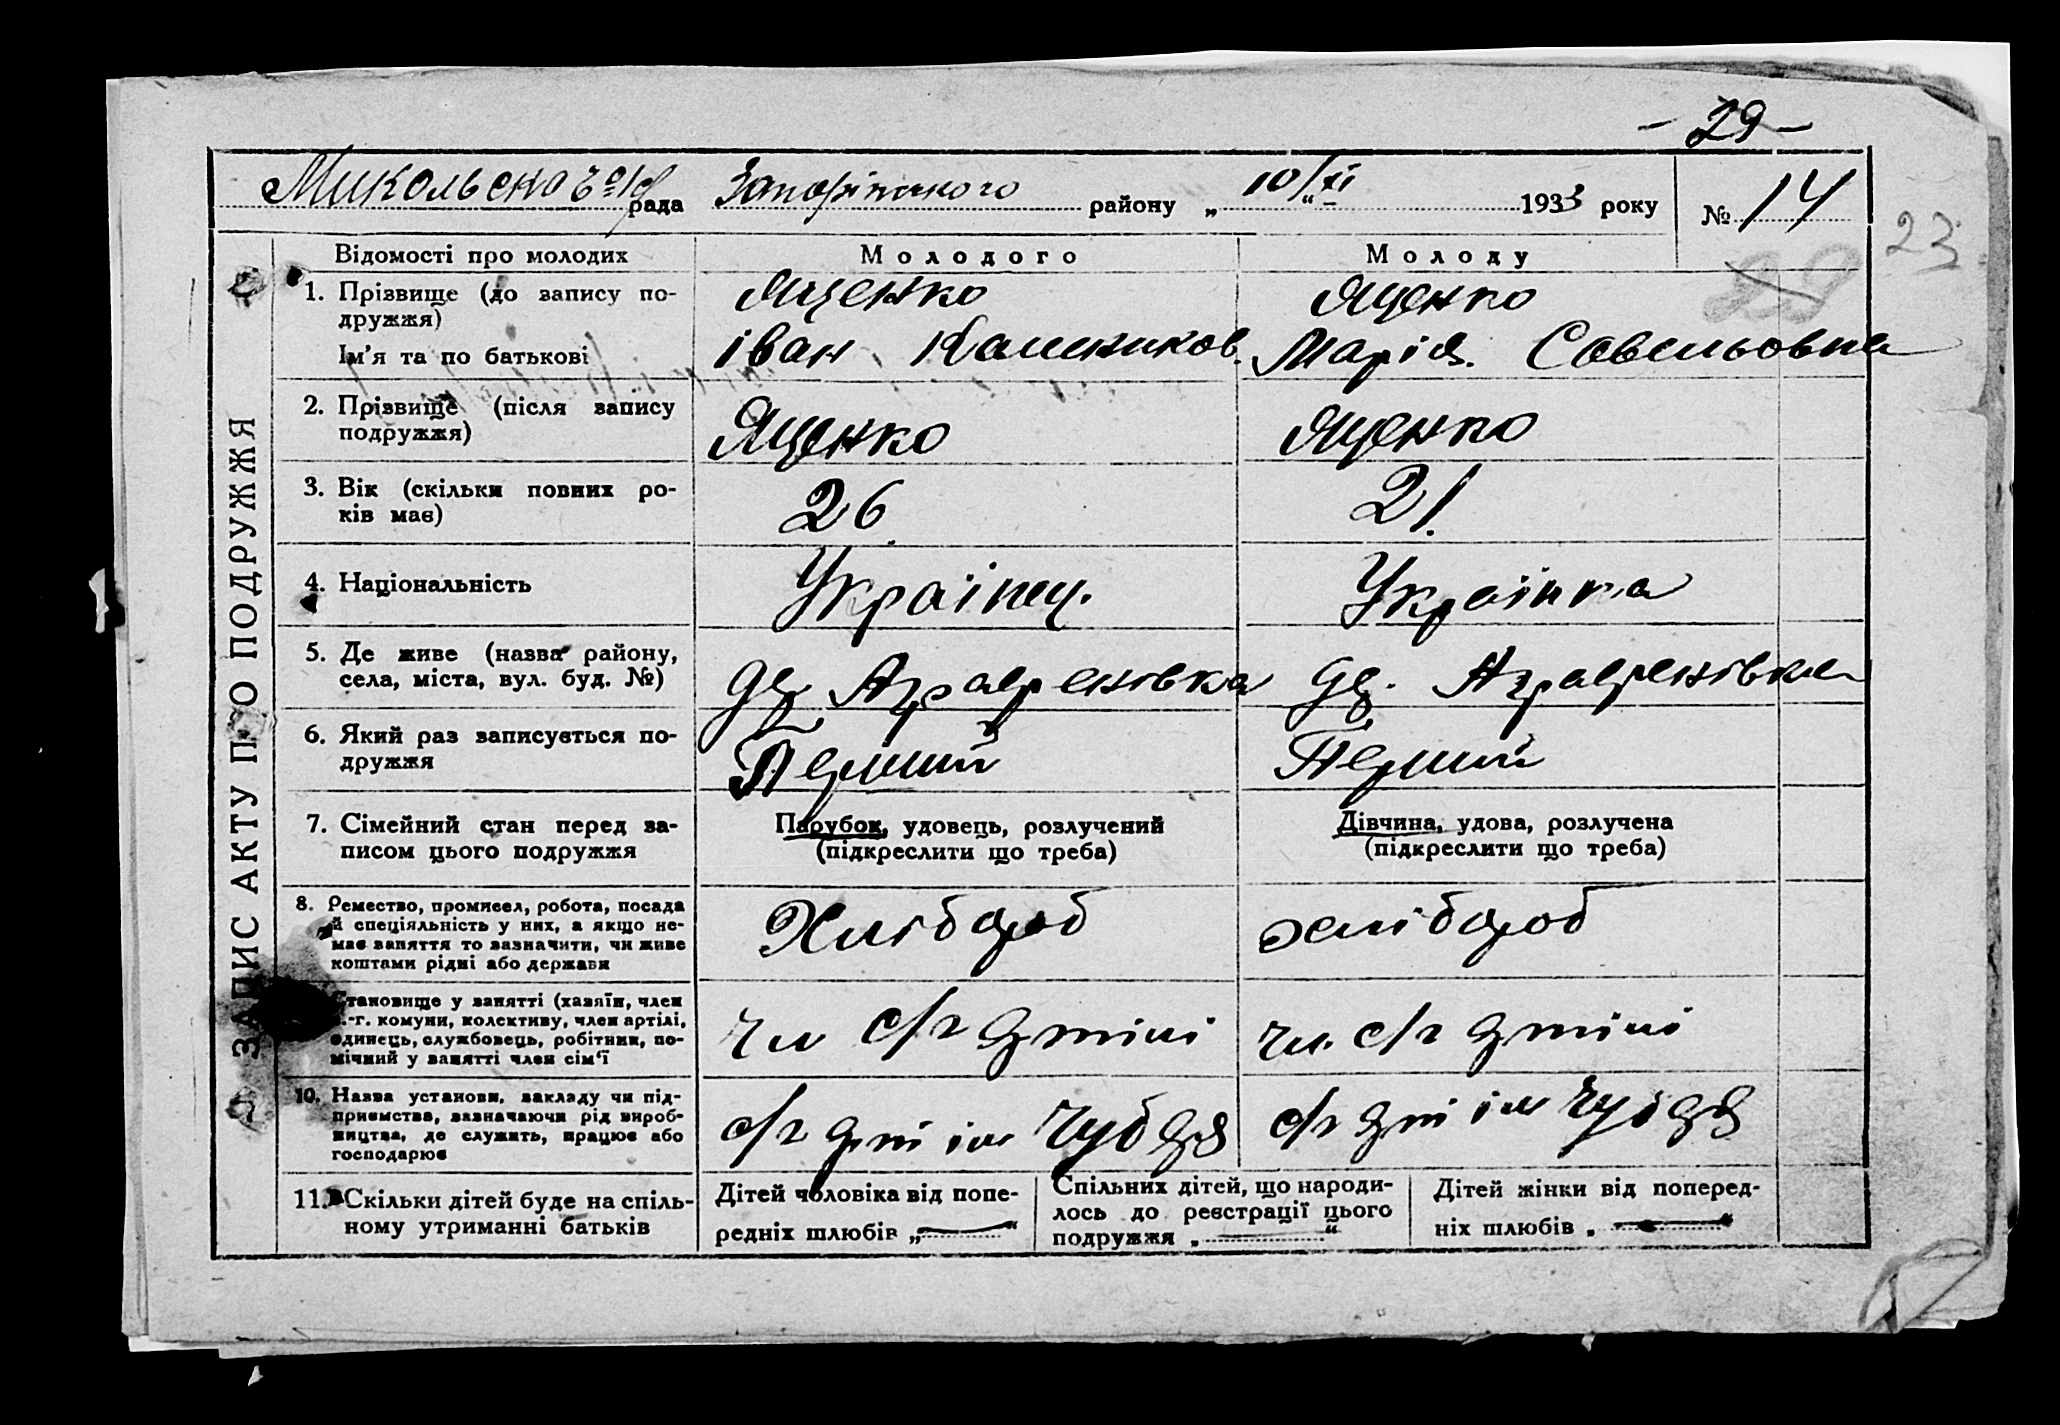 - 29 -
Микольсько с/рада Запорізького району „ 10/XI “ 1933 року № 14
23
ЗАПИС АКТУ ПРО ПОДРУЖЖЯ
Відомості про молодих Молодого Молоду
1. Прізвище (до запису по- Яценко Яценко
дружжя)
Ім'я та по батькові Іван Марія Савельовна
2. Прізвище (після запису Яценко Яценко
подружжя)
3. Вік (скільки повних ро- 26 21
ків має)
4. Національність Українец. Українка
5. Де живе (назва району, Аграфенівка Аграфенівка
села, міста, вул. буд. №)
6. Який раз записується по- Перший Перший
дружжя
7. Сімейний стан перед за- Парубок, удовець, розлучений Дівчина, удова, розлучена
писом цього подружжя (підкреслити що треба) (підкреслити що треба)
8. Ремество, промисел, робота, посада Хлібороб хлібороб
й спеціяльність у них, а якщо не-
має заняття то зазначити, чи живе
коштами рідні або держави
Становище у занятті (хазяїн, член чл с/г артілі чл. с/г артілі
с.-г. комуни, колективу, член артілі,
одинець, службовець, робітник, по-
мічний у занятті член сім'ї
10. Назва установи, закладу чи під- с/г арт ім Чубаря с/г арт ім Чубаря
приємства, зазначаючи рід вироб-
ництва, де служить, працює або
господарює
11. Скільки дітей буде на спіль- Дітей чоловіка від попе- Спільних дітей, що народи- Дітей жінки від поперед-
ному утриманні батьків редніх шлюбів „ — “ лось до реєстрації цього ніх шлюбів „ — “
подружжя „ — “